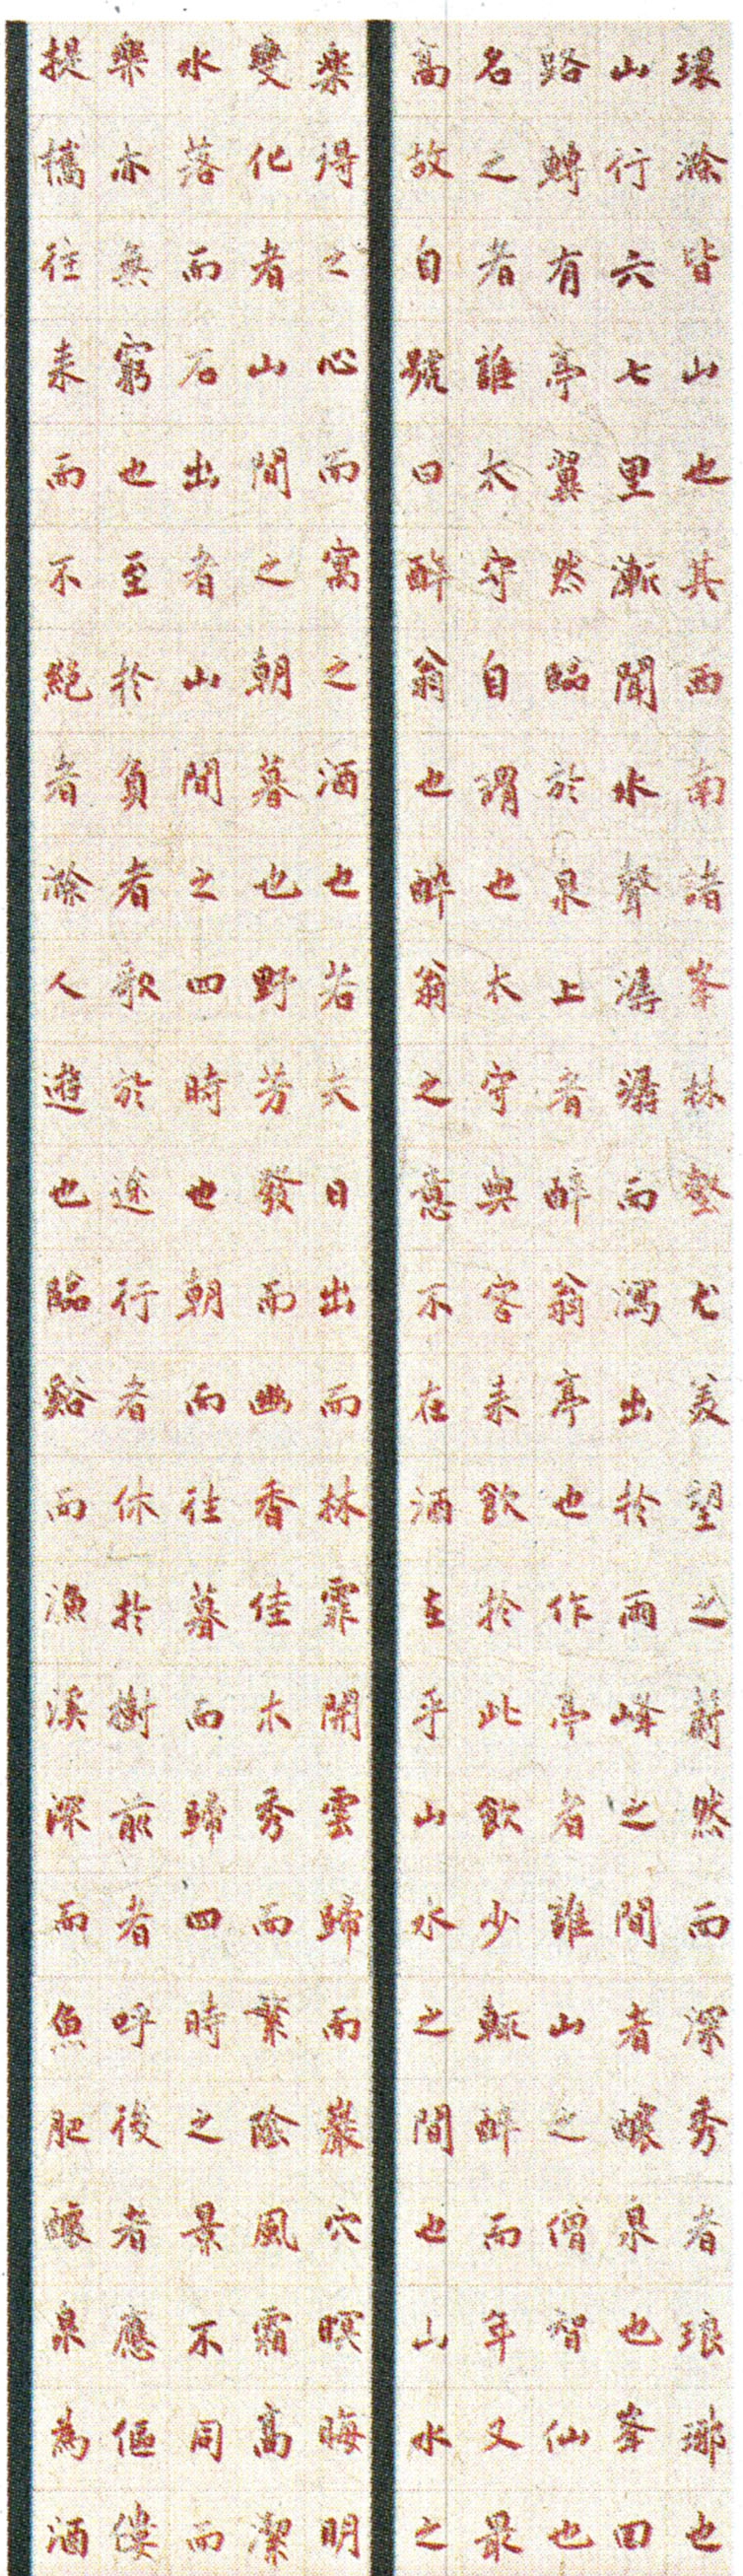 環滁皆山也其西南諸峯林壑尤美望之蔚然而深秀者琅琊也
山行六七里漸聞水聲潺潺而瀉出於兩峰之間者釀泉也峯回
路轉有亭翼然臨於泉上者醉翁亭也作亭者誰山之僧智仙也
名之者誰太守自謂也太守與客来飲於此飲少輒醉而年又最
高故自號曰醉翁也醉翁之意不在酒在乎山水之間也山水之
樂得之心而寓之酒也若夫日出而林霏開雲歸而巖穴暝晦明
變化者山間之朝暮也野芳發而幽香佳木秀而繁陰風霜高潔
水落而石出者山間之四時也朝而往暮而歸四時之景不同而
樂亦無窮也至於負者歌於途行者休於樹前者呼後者應傴僂
提攜往来而不絕者滁人遊也臨谿而漁溪深而魚肥釀泉為酒